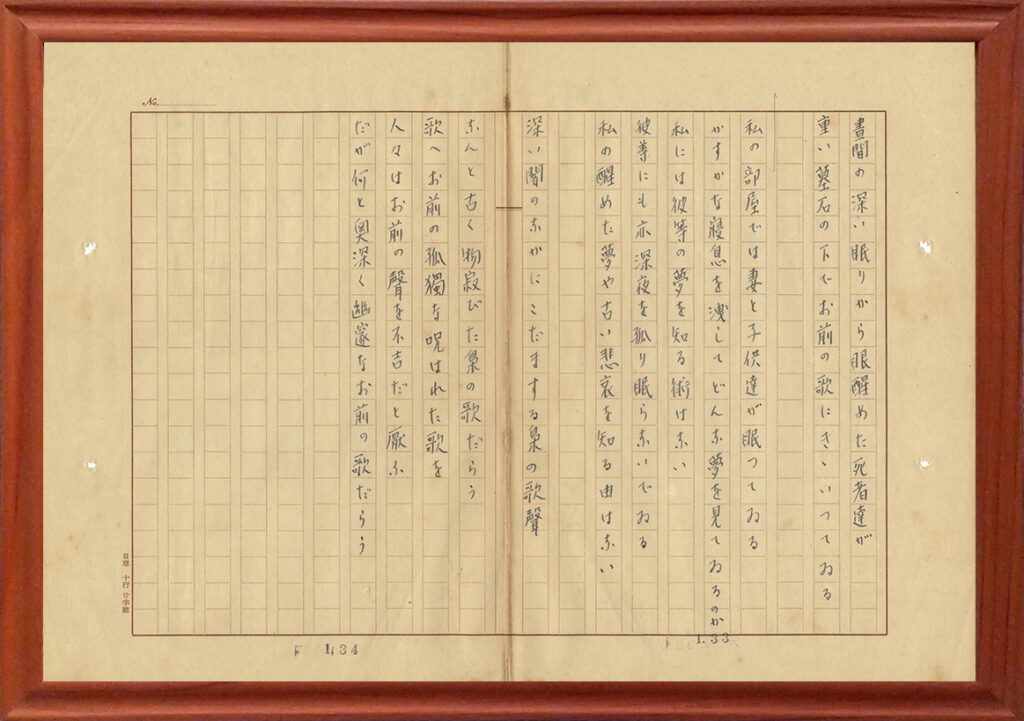 No.
晝間の深い眠りから眼醒めた死者達が
重い墓石の下でお前の歌にきゝいつてゐる
私の部屋では妻と子供達が眠つてゐる
かすかな寢息を洩してどんな夢を見てゐるのか
私には彼等の夢を知る術はない
彼等にも亦深夜を孤り眠らないでゐる
私の醒めた夢や古い悲哀を知る由はない
深い闇のなかにこだまする梟の歌聲
なんと古く物寂びた梟の歌だらう
歌へお前の孤獨な呪はれた歌を
人々はお前の聲を不吉だと厭ふ
だが何と奥深く幽邃なお前の歌だらう
十行廿字詰
1.33
1.34